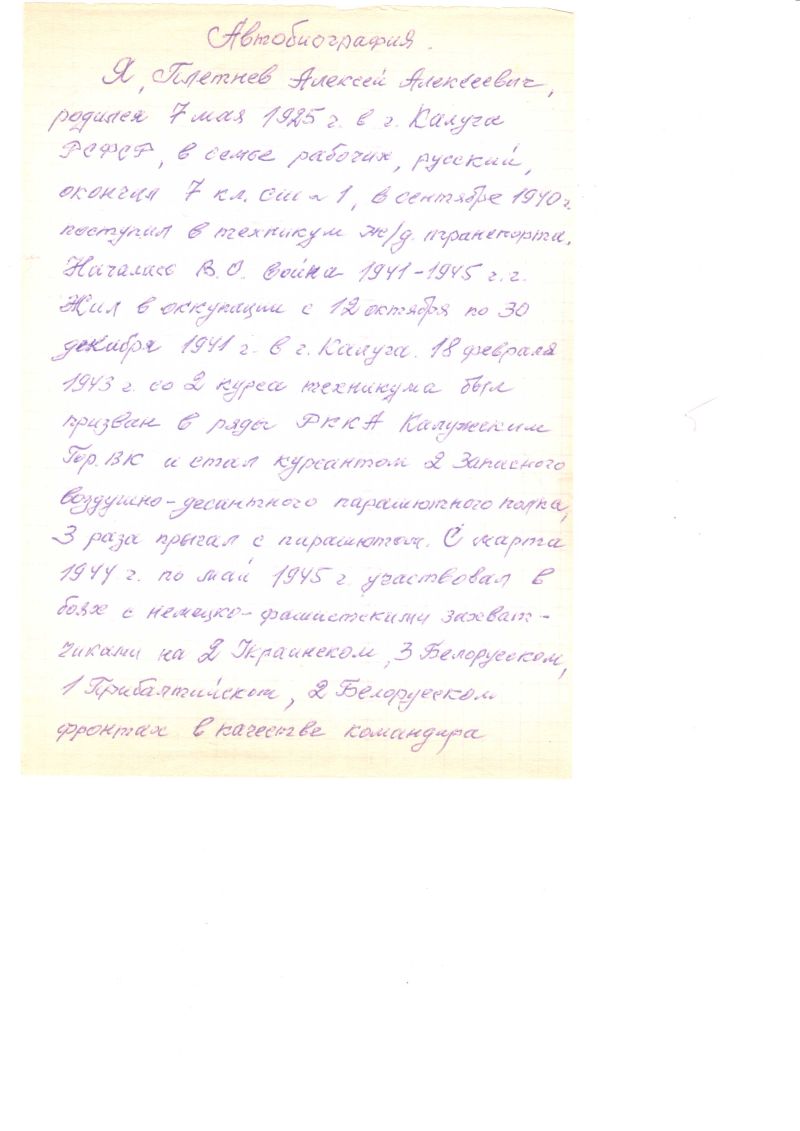 Автобиография.
Я, Плетнев Алексей Алексеевич,
родился 7 мая 1925 г. в г. Калуга
РСФСР, в семье рабочих, русский,
окончил 7 кл. сш № 1, в сентябре 1940 г.
поступил в техникум ж/д. транспорта.
Началась В.О. война 1941-1945 г.г.
Жил в оккупации с 12 октября по 30
декабря 1941 г. в г. Калуга. 18 февраля
1943 г. со 2 курса техникума был
призван в ряды РККА Калужским
Гор. ВК и стал курсантом 2 Запасного
воздушно-десантного парашютного полка,
3 раза прыгал с парашютом. С марта
1944 г. по май 1945 г. участвовал в
боях с немецко-фашистскими захват-
чиками на 2 Украинском, 3 Белорусском,
1 Прибалтийском, 2 Белорусском
фронтах в качестве командира